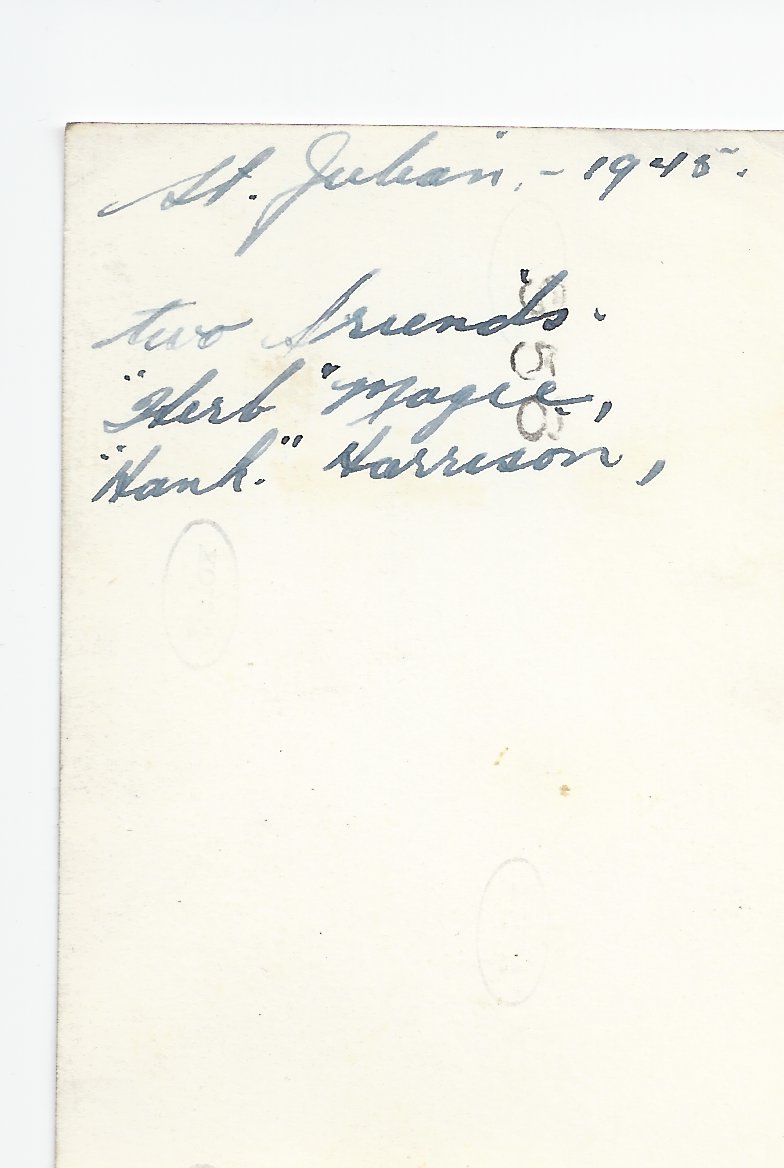 St. Julian, - 1945.
two friends.
"Herb" Magee,
"Hank." Harrison,